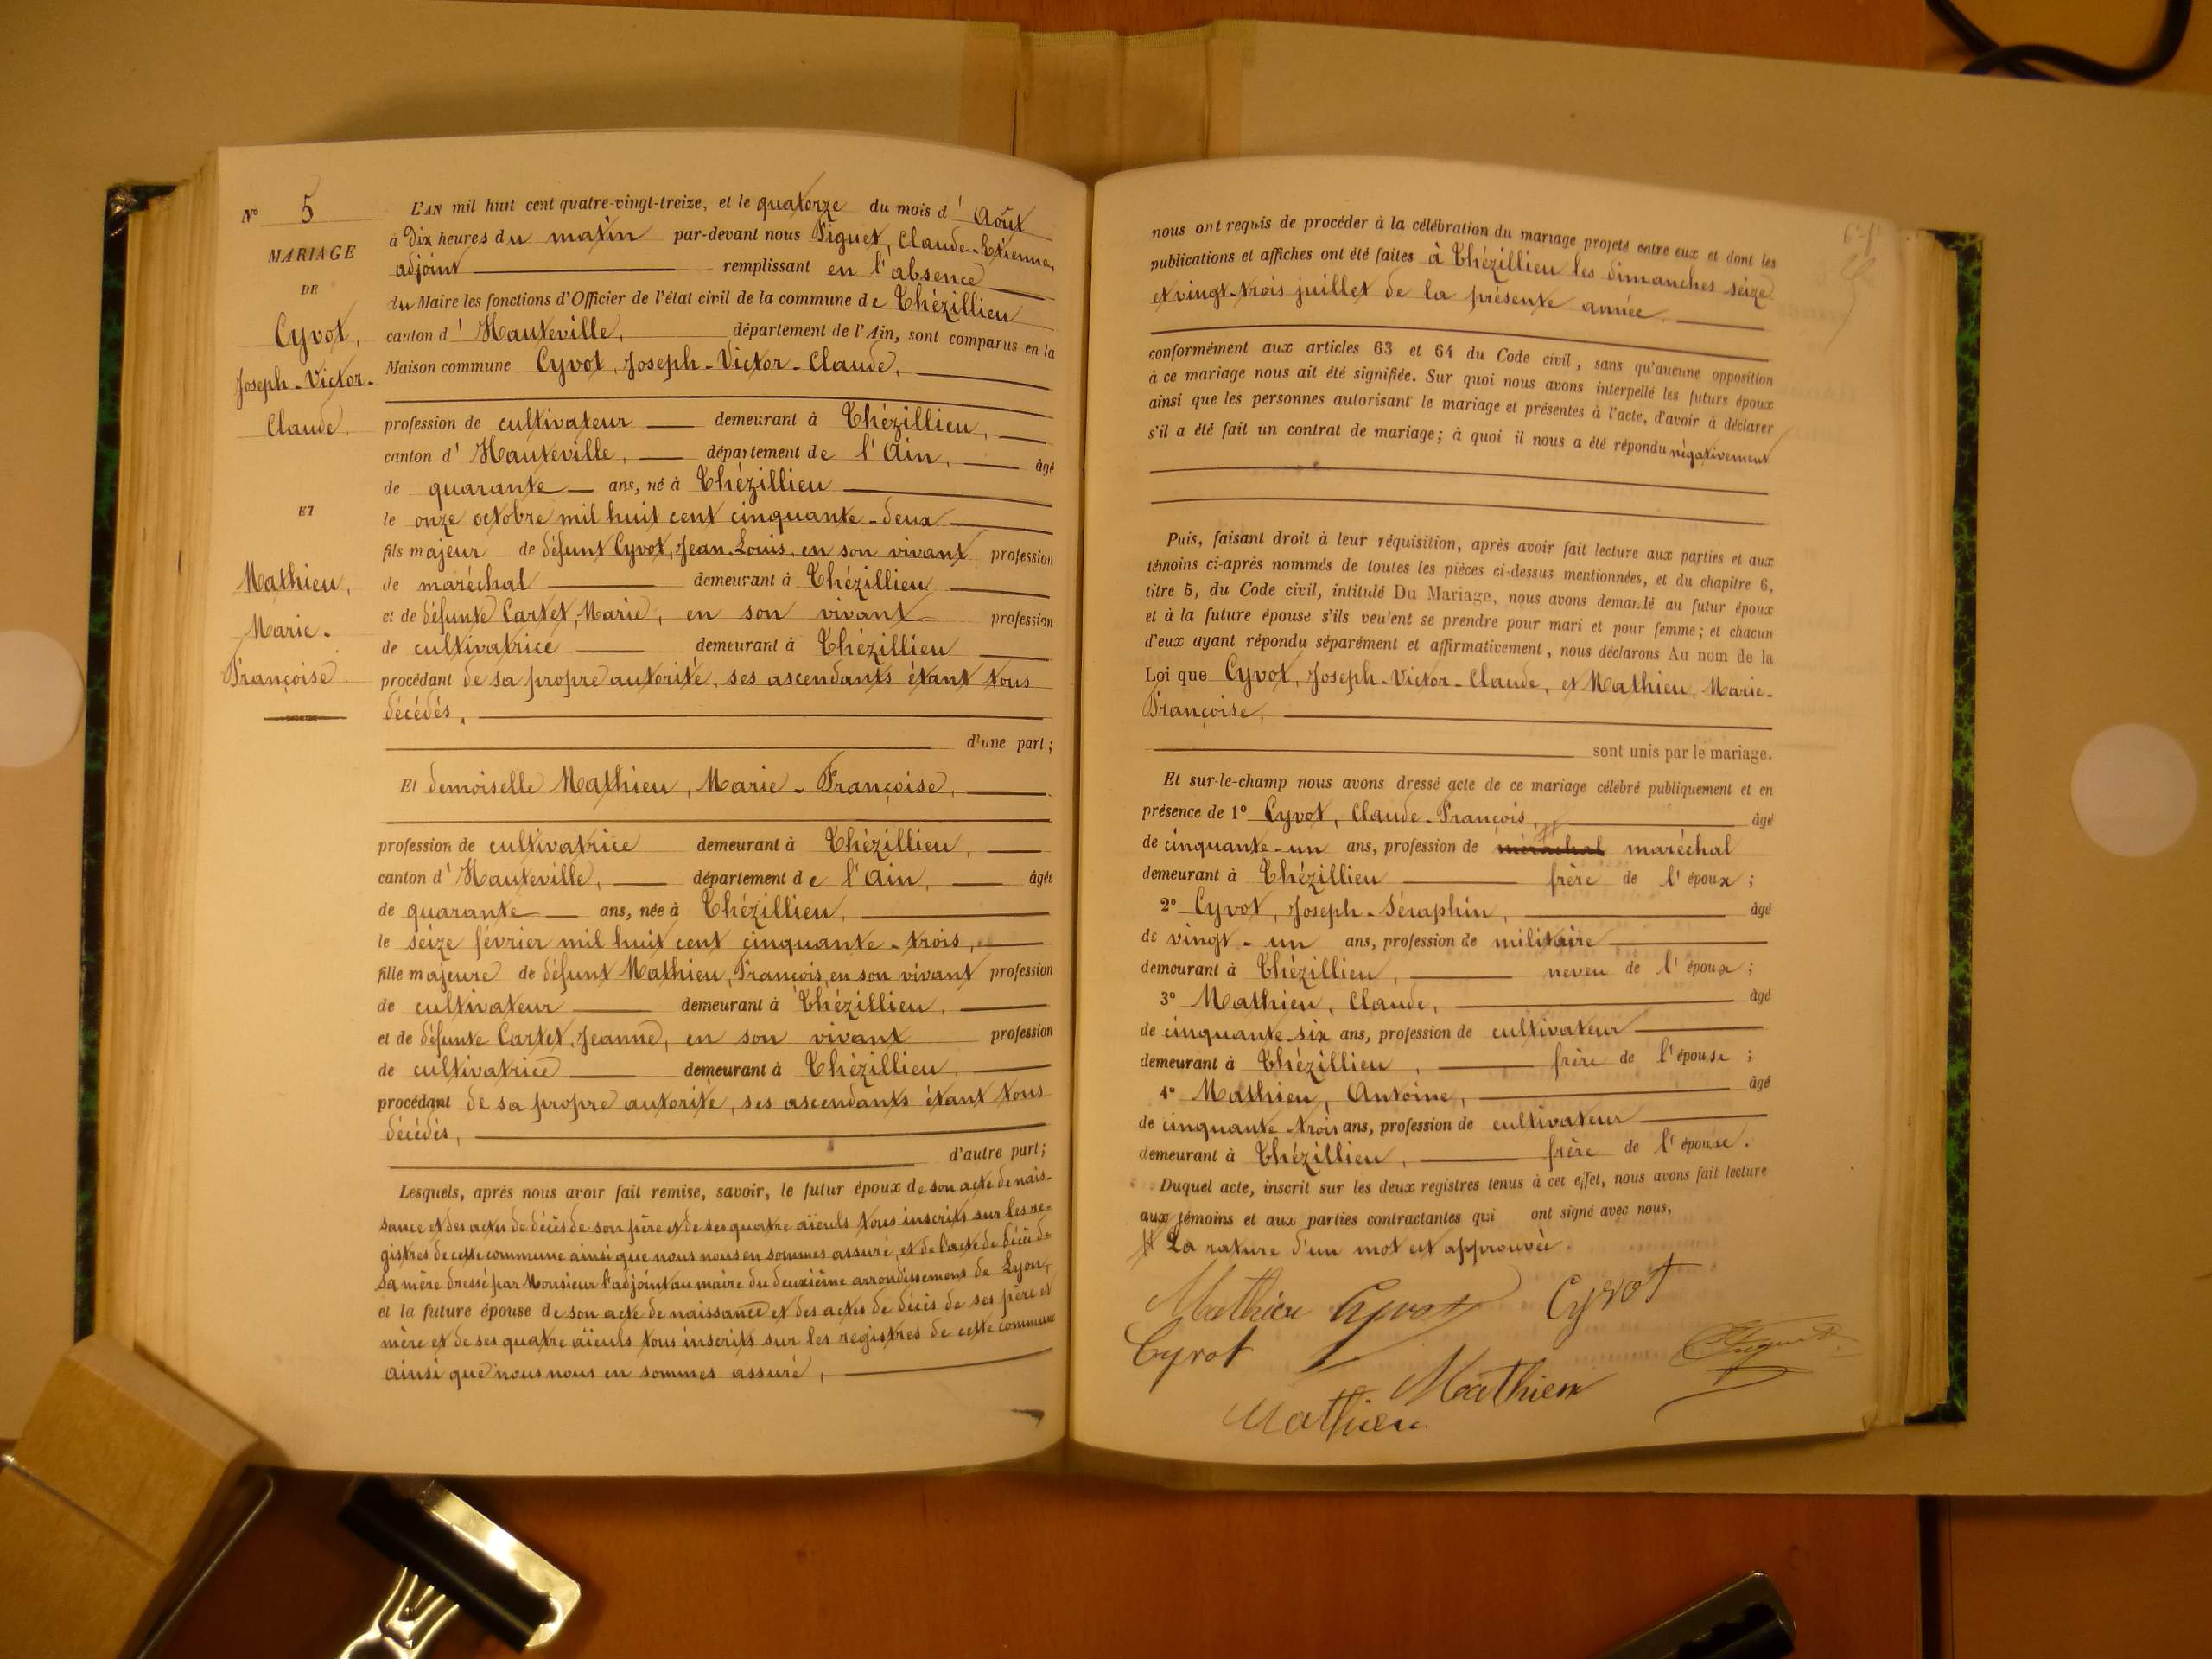 N° 5
MARIAGE
DE
Cyvot,
Joseph-Victor-
Claude.
ET
Mathieu,
Marie-
Françoise
L'AN mil huit cent quatre-vingt-treize, et le quatorze du mois d' Août
à Dix heures du matin par-devant nous Piguet, Claude-Etienne,
adjoint remplissant en l'absence
du Maire les fonctions d'Officier de l'état civil de la commune de Thézillieu
canton d' Hauteville, département de l'Ain, sont comparus en la
Maison commune Cyvot, Joseph-Victor-Claude,
profession de cultivateur demeurant à Thézillieu,
canton d' Hauteville, département de l'Ain, âgé
de quarante ans, né à Thézillieu
le onze octobre mil huit cent cinquante-deux
fils majeur de défunt Cyvot, Jean-Louis, en son vivant profession
de maréchal demeurant à Thézillieu
et de défunte Cartet, Marie, en son vivant profession
de cultivatrice demeurant à Thézillieu
procédant de sa propre autorité, ses ascendants étant tous
décédés,
d'une part;
Et demoiselle Mathieu, Marie-Françoise,
profession de cultivatrice demeurant à Thézillieu,
canton d' Hauteville, département de l'Ain, âgée
de quarante ans, née à Thézillieu,
le seize février mil huit cent cinquante-trois,
fille majeure de défunt Mathieu, François, en son vivant profession
de cultivateur demeurant à Thézillieu,
et de défunte Cartet, Jeanne, en son vivant profession
de cultivatrice demeurant à Thézillieu,
procédant de sa propre autorité, ses ascendants étant tous
décédés,
d'autre part;
Lesquels, après nous avoir fait remise, savoir, le futur époux de son acte de nais-
sance et des actes de décès de son père et de ses quatre aïeuls tous inscrits sur les re-
gistres de cette commune ainsi que nous nous en sommes assuré, et de l'acte de décès de
sa mère dressé par Monsieur l'adjoint au maire du deuxième arrondissement de Lyon,
et la future épouse de son acte de naissance et des actes de décès de ses père et
mère et de ses quatre aïeuls tous inscrits sur les registres de cette commune
ainsi que nous nous en sommes assuré,
nous ont requis de procéder à la célébration du mariage projeté entre eux et dont les
publications et affiches ont été faites à Thézillieu les dimanches seize
et vingt-trois juillet de la présente année.
conformément aux articles 63 et 64 du Code civil, sans qu'aucune opposition
à ce mariage nous ait été signifiée. Sur quoi nous avons interpellé les futurs époux
ainsi que les personnes autorisant le mariage et présentes à l'acte, d'avoir à déclarer
s'il a été fait un contrat de mariage; à quoi il nous a été répondu négativement
Puis, faisant droit à leur réquisition, après avoir fait lecture aux parties et aux
témoins ci-après nommés de toutes les pièces ci-dessus mentionnées, et du chapitre 6,
titre 5, du Code civil, intitulé Du Mariage, nous avons demandé au futur époux
et à la future épouse s'ils veulent se prendre pour mari et pour femme; et chacun
d'eux ayant répondu séparément et affirmativement, nous déclarons Au nom de la
Loi que Cyvot, Joseph-Victor-Claude, et Mathieu, Marie-
Françoise,
sont unis par le mariage.
Et sur-le-champ nous avons dressé acte de ce mariage célébré publiquement et en
présence de 1° Cyvot, Claude-François, âgé
de cinquante-un ans, profession de maréchal
demeurant à Thézillieu frère de l'époux;
2° Cyvot, Joseph-Séraphin, âgé
de vingt-un ans, profession de militaire
demeurant à Thézillieu, neveu de l'époux;
3° Mathieu, Claude, âgé
de cinquante-six ans, profession de cultivateur
demeurant à Thézillieu, frère de l'épouse;
4° Mathieu, Antoine, âgé
de cinquante-trois ans, profession de cultivateur
demeurant à Thézillieu, frère de l'épouse.
Duquel acte, inscrit sur les deux registres tenus à cet effet, nous avons fait lecture
aux témoins et aux parties contractantes qui ont signé avec nous,
La rature d'un mot est approuvée.
Mathieu Cyvot Cyvot
Cyvot Piguet
Mathieu
Mathieu